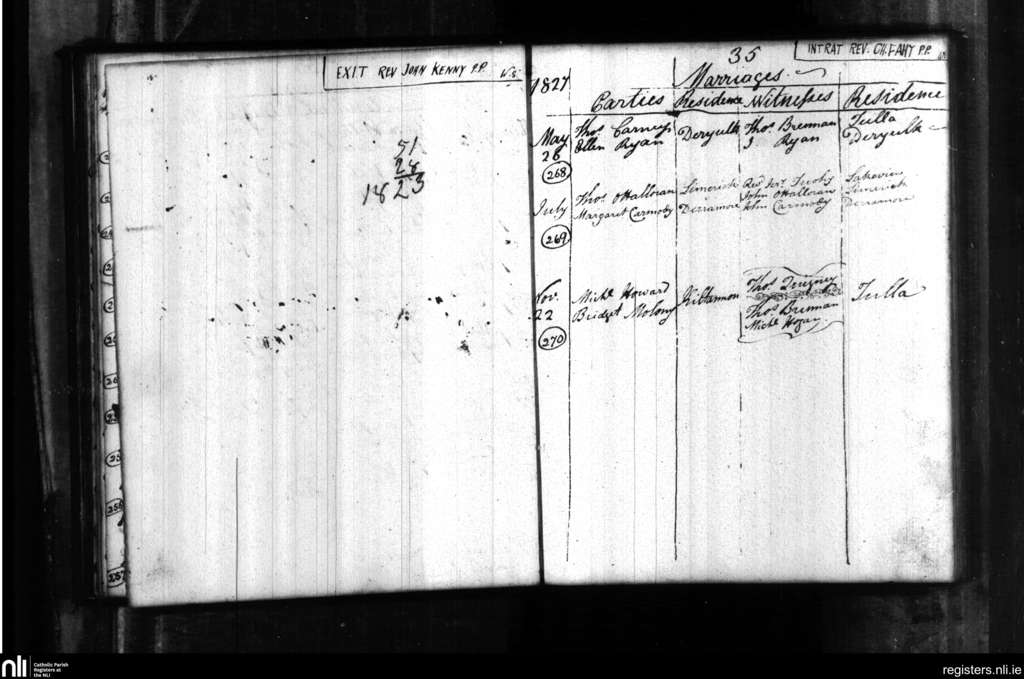 EXIT REV JOHN KENNY P.P.
51
28
1823
INTRAT REV. P.P.
35
1827
Marriages
Parties Residence Witnesses Residence
May Thos Carney Deryulk Thos Brennan Tulla
26 Ellen Ryan J Ryan Deryulk
268
July Thos OHalloran Limerick Revd Jer. Lakeview
John OHalloran Limerick
Margaret Carmody Derramore John Carmody Derramore
269
Nov. Michl Howard Kiltannon Thos Tulla
22 Bridget Molony Thos Brennan
Michl Hogan
270
nli
Catholic Parish
Registers at
the NLI
registers.nli.ie